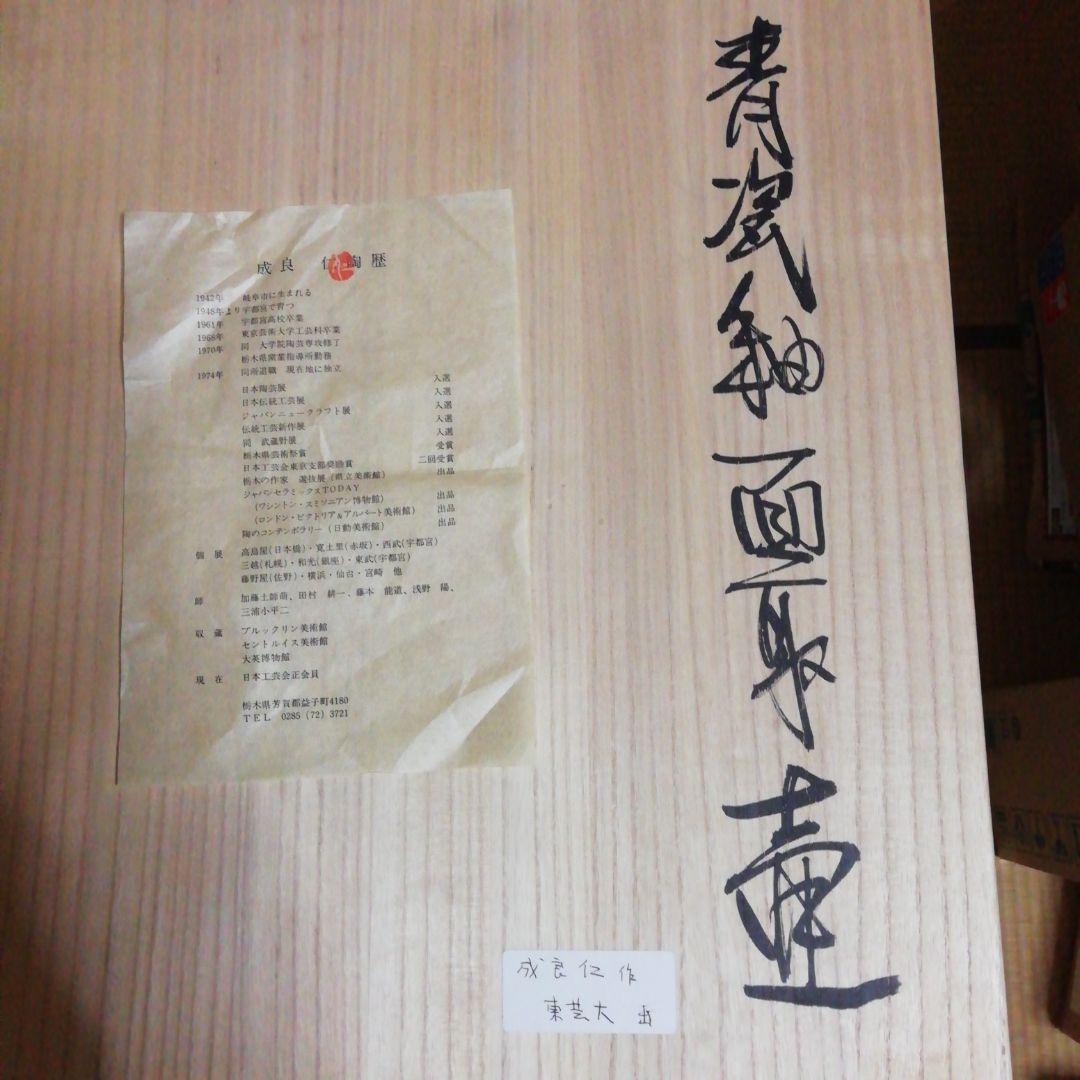 青瓷釉面取壺
成良 仁 陶歴
1942年 岐阜市に生まれる
1948年より宇都宮で育つ
1961年 宇都宮高校卒業
1968年 東京芸術大学工芸科卒業
1970年 同 大学院陶芸専攻修了
栃木県窯業指導所勤務
1974年 同所退職 現在地に独立
日本陶芸展 入選
日本伝統工芸展 入選
ジャパンニュークラフト展 入選
伝統工芸新作展 入選
同 武蔵野展 入選
栃木県芸術祭賞 受賞
日本工芸会東京支部奨励賞 二回受賞
栃木の作家 選抜展(県立美術館) 出品
ジャパンセラミックスTODAY
(ワシントン・スミソニアン博物館) 出品
(ロンドン・ビクトリア&アルバート美術館) 出品
陶のコンテンポラリー(日動美術館) 出品
個展 高島屋(日本橋)・寛土里(赤坂)・西武(宇都宮)
三越(札幌)・和光(銀座)・東武(宇都宮)
藤野屋(佐野)・横浜・仙台・宮崎 他
師 加藤土師萌、田村 耕一、藤本 能道、浅野 陽、
三浦小平二
収蔵 ブルックリン美術館
セントルイス美術館
大英博物館
現在 日本工芸会正会員
栃木県芳賀郡益子町4180
TEL 0285(72)3721
成良仁作
東芸大 出